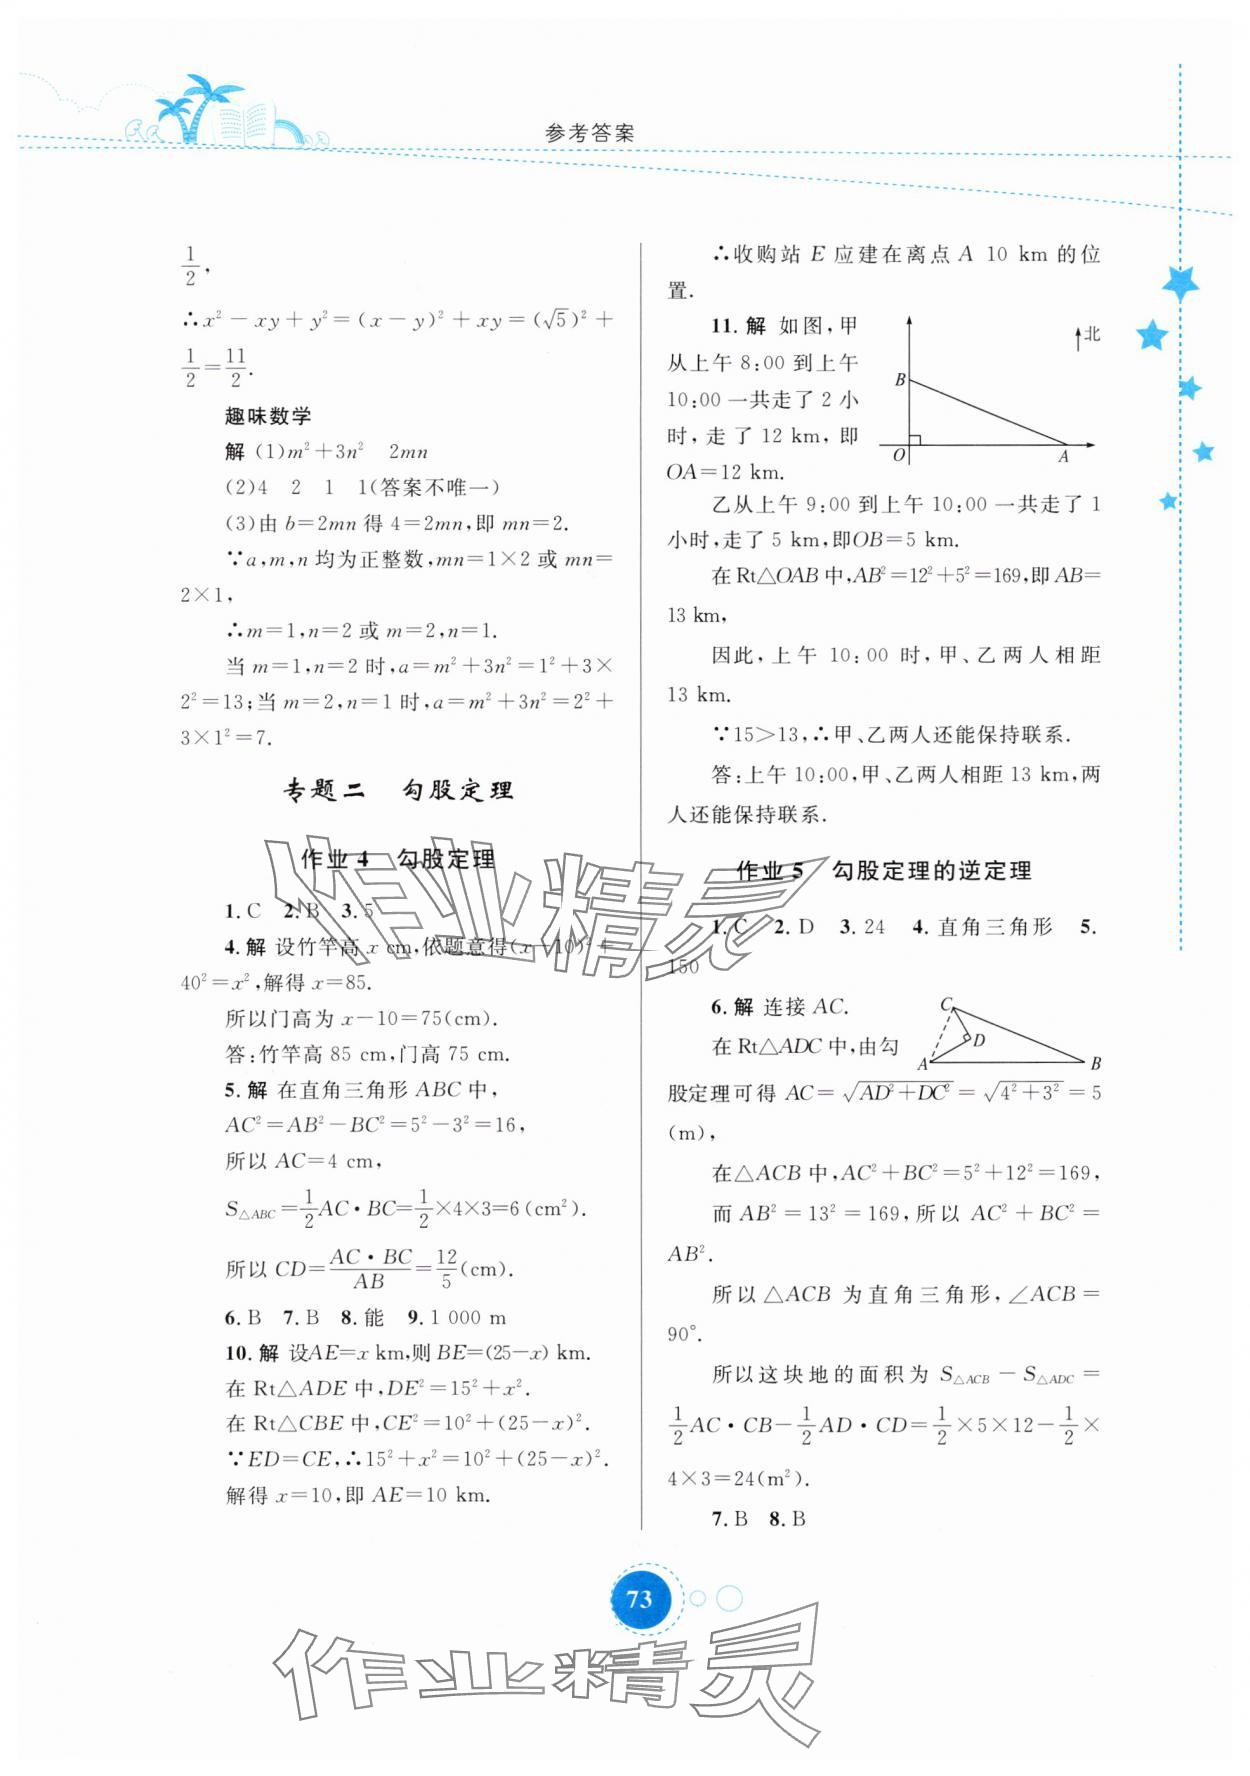 参考答案
1/2,
∴x²－xy＋y²＝(x－y)²＋xy＝(√5)²＋
1/2＝11/2.
趣味数学
解 (1)m²＋3n²　2mn
(2)4　2　1　1(答案不唯一)
(3)由 b＝2mn 得 4＝2mn,即 mn＝2.
∵a,m,n 均为正整数,mn＝1×2 或 mn＝
2×1,
∴m＝1,n＝2 或 m＝2,n＝1.
当 m＝1,n＝2 时,a＝m²＋3n²＝1²＋3×
2²＝13;当 m＝2,n＝1 时,a＝m²＋3n²＝2²＋
3×1²＝7.
专题二　勾股定理
作业 4　勾股定理
1.C　2.B　3.5
4.解 设竹竿高 x cm,依题意得(x－10)²＋
40²＝x²,解得 x＝85.
所以门高为 x－10＝75(cm).
答:竹竿高 85 cm,门高 75 cm.
5.解 在直角三角形 ABC 中,
AC²＝AB²－BC²＝5²－3²＝16,
所以 AC＝4 cm,
S△ABC＝1/2AC·BC＝1/2×4×3＝6(cm²).
所以 CD＝AC·BC/AB＝12/5(cm).
6.B　7.B　8.能　9.1 000 m
10.解 设AE＝x km,则 BE＝(25－x) km.
在 Rt△ADE 中,DE²＝15²＋x².
在 Rt△CBE 中,CE²＝10²＋(25－x)².
∵ED＝CE,∴15²＋x²＝10²＋(25－x)².
解得 x＝10,即 AE＝10 km.
∴收购站 E 应建在离点 A 10 km 的位
置.
11.解 如图,甲
从上午 8:00 到上午
10:00 一共走了 2 小
时,走了 12 km,即
OA＝12 km.
北
B
O
A
乙从上午 9:00 到上午 10:00 一共走了 1
小时,走了 5 km,即OB＝5 km.
在 Rt△OAB 中,AB²＝12²＋5²＝169,即 AB＝
13 km,
因此,上午 10:00 时,甲、乙两人相距
13 km.
∵15＞13,∴甲、乙两人还能保持联系.
答:上午 10:00,甲、乙两人相距 13 km,两
人还能保持联系.
作业 5　勾股定理的逆定理
1.C　2.D　3.24　4.直角三角形　5.
150
6.解 连接 AC.
在 Rt△ADC 中,由勾
C
D
A
B
股定理可得 AC＝√(AD²＋DC²)＝√(4²＋3²)＝5
(m),
在△ACB 中,AC²＋BC²＝5²＋12²＝169,
而 AB²＝13²＝169,所以 AC²＋BC²＝
AB².
所以△ACB 为直角三角形,∠ACB＝
90°.
所以这块地的面积为 S△ACB－S△ADC＝
1/2AC·CB－1/2AD·CD＝1/2×5×12－1/2×
4×3＝24(m²).
7.B　8.B
73
作业精灵
作业精灵